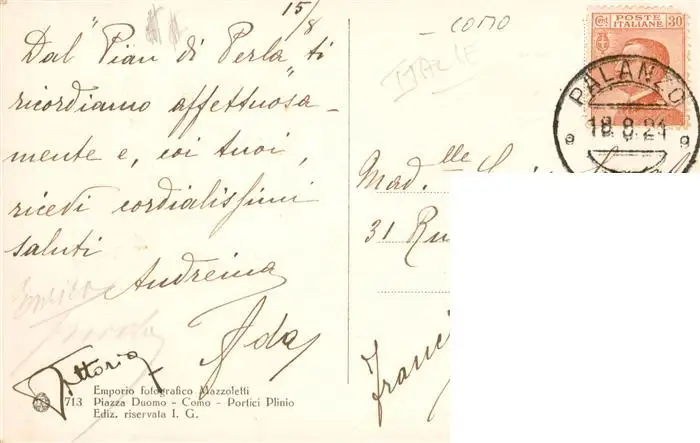 15/8
Dal "Pian di Perla" ti
ricordiamo affettuosa-
mente e, coi tuoi,
ricevi cordialissimi
saluti
Andreina
Ada
Vittoria
Enrica
Emporio fotografico Mazzoletti
713 Piazza Duomo - Como - Portici Plinio
Ediz. riservata I. G.
COMO
ITALIE
POSTE
ITALIANE
Cent. 30
PALANZO
18.8.21
Mad.lle
31 Ru
Franc